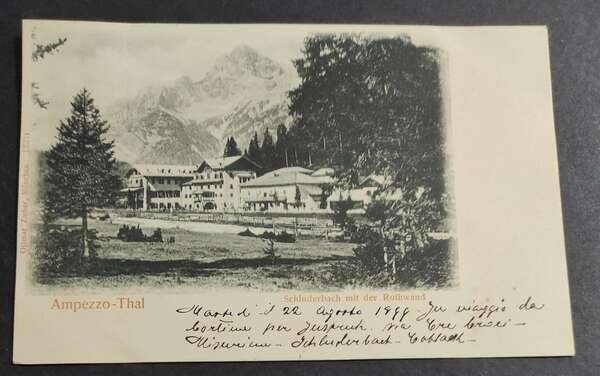 Schluderbach mit der Rothwand
Ampezzo-Thal
Martedì 22 Agosto 1899 - In viaggio da
Cortina per Inspruck. via Tre Croci -
Misurina - Schluderbach - Toblach -